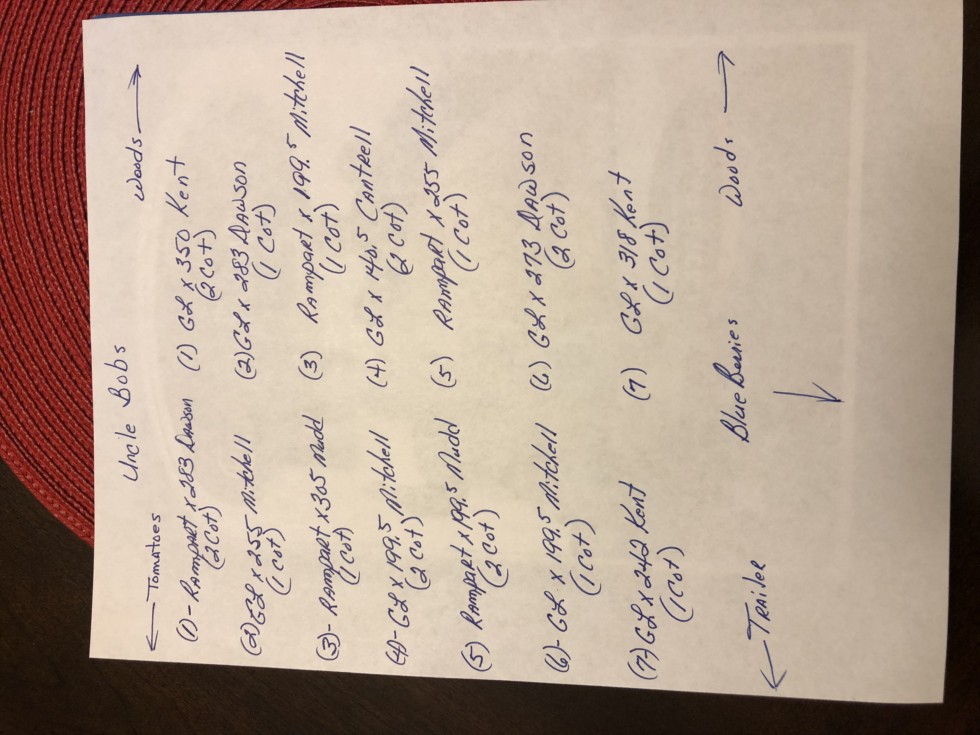 Uncle Bobs
← Tomatoes Woods →
(1) - Rampart x 283 Dawson (1) GL x 350 Kent
(2 Cot) (2 Cot)
(2) GL x 255 Mitchell (2) GL x 283 Dawson
(1 Cot) (1 Cot)
(3) - Rampart x 305 Nudd (3) Rampart x 199.5 Mitchell
(1 Cot) (1 Cot)
(4) - GL x 199.5 Mitchell (4) GL x 140.5 Cantrell
(2 Cot) (2 Cot)
(5) Rampart x 199.5 Nudd (5) Rampart x 255 Mitchell
(2 Cot) (1 Cot)
(6) - GL x 199.5 Mitchell (6) GL x 273 Dawson
(1 Cot) (2 Cot)
(7) GL x 242 Kent (7) GL x 318 Kent
(1 Cot) (1 Cot)
← Trailer Blue Berries Woods →
↓